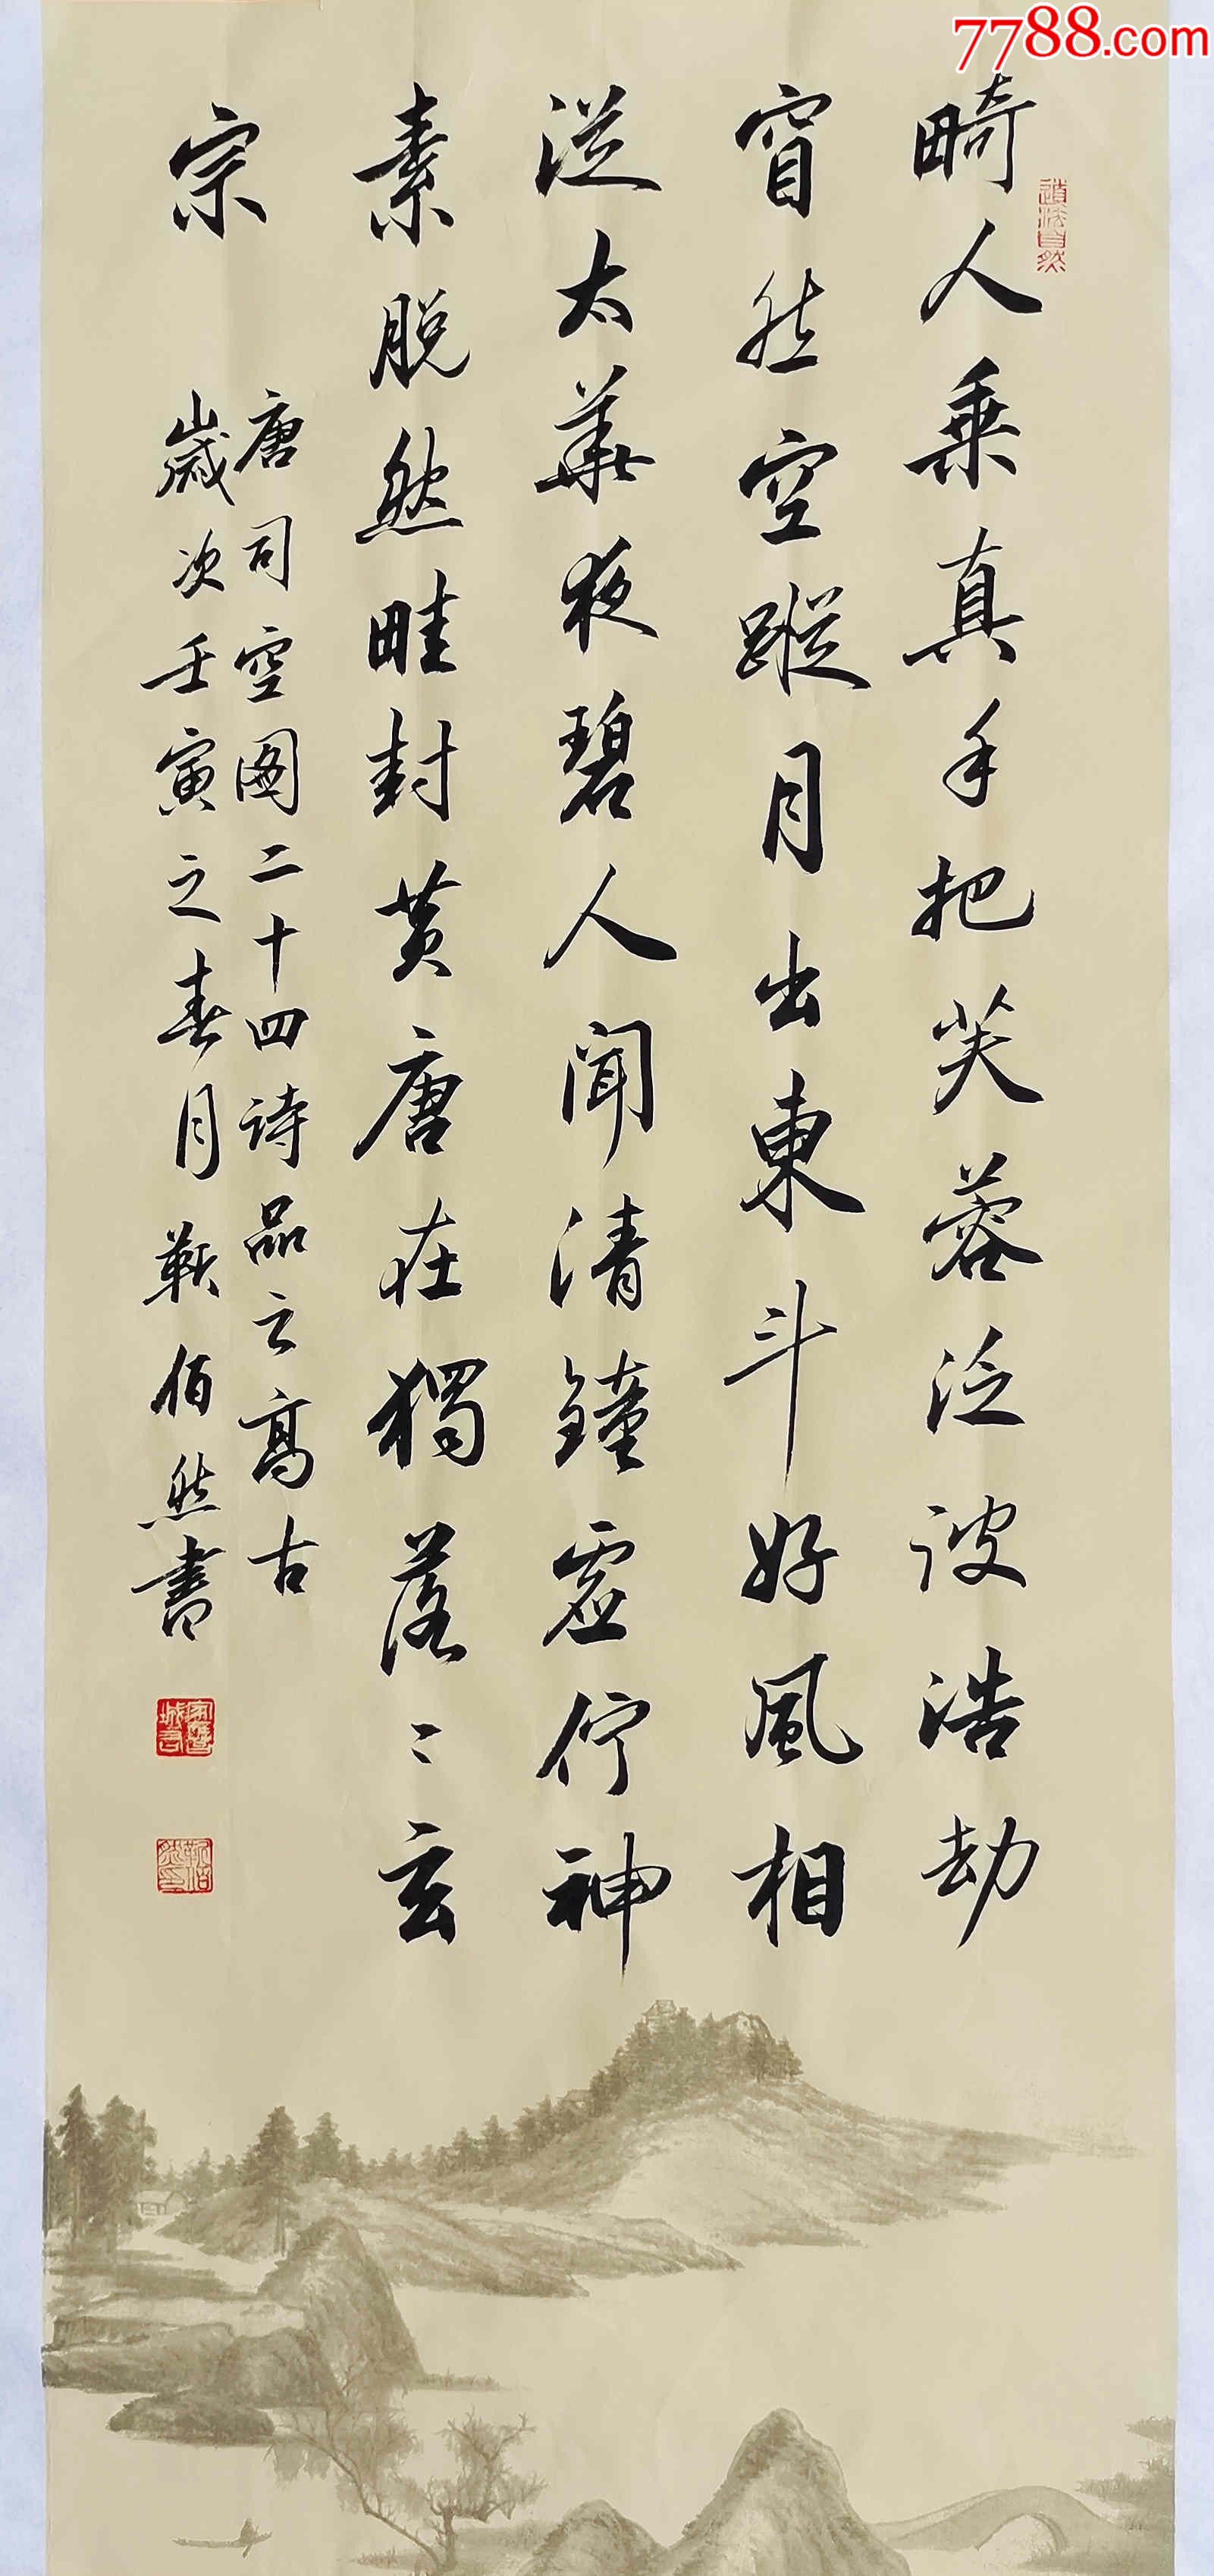 7788.com
道法自然
畸人乘真手把芙蓉泛彼浩劫
窅然空蹤月出東斗好風相
從太華夜碧人聞清鐘虛佇神
素脫然畦封黃唐在獨落々玄
宗
唐司空图二十四诗品之高古
歲次壬寅之春月靳佰然書
靳佰然印